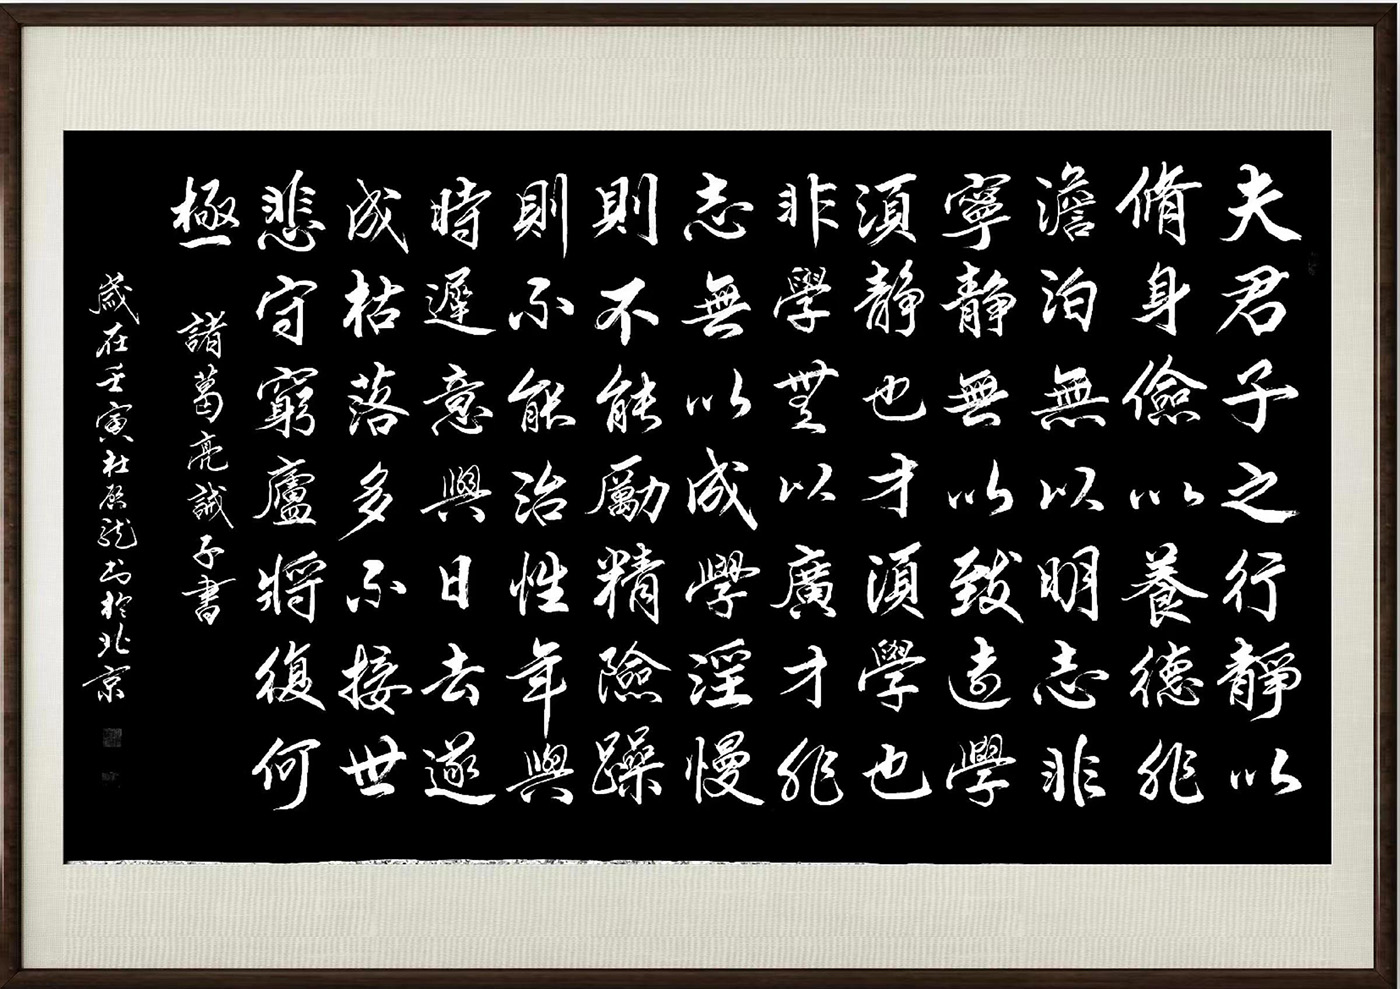 夫君子之行靜以
脩身儉以養德非
澹泊無以明志非
寧靜無以致遠學
須靜也才須學也
非學無以廣才非
志無以成學淫慢
則不能勵精險躁
則不能治性年與
時遲意與日去遂
成枯落多不接世
悲守窮廬將復何
極
諸葛亮誡子書
歲在壬寅杜啟龍书於北京